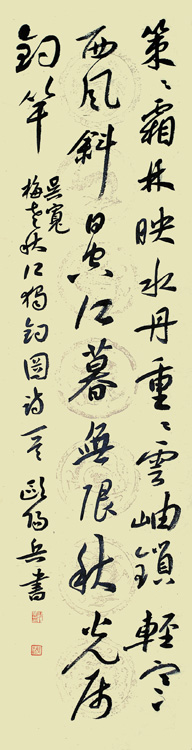 策〻霜林映水丹重〻雲岫鎖輕寒
西風斜日空江暮無限秋光屬
釣竿
吳寬
梅老秋江獨釣圖詩一首歐陽兵書